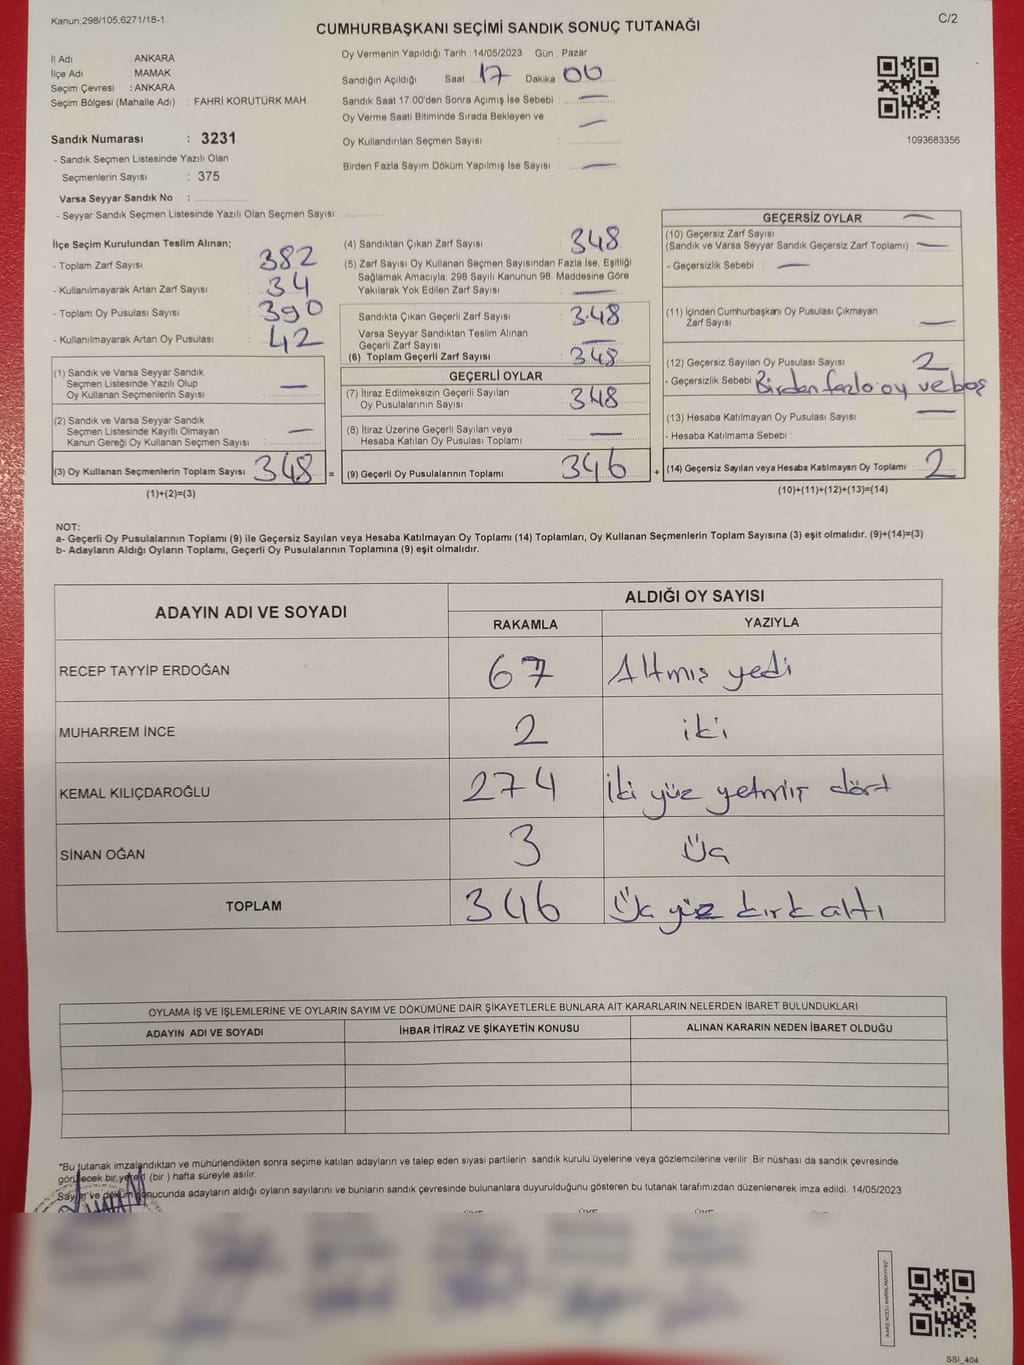 Kanun;298/105;6271/18-1
C/2
CUMHURBAŞKANI SEÇİMİ SANDIK SONUÇ TUTANAĞI
İl Adı : ANKARA
İlçe Adı : MAMAK
Seçim Çevresi : ANKARA
Seçim Bölgesi (Mahalle Adı) : FAHRİ KORUTÜRK MAH.
Sandık Numarası : 3231
- Sandık Seçmen Listesinde Yazılı Olan
Seçmenlerin Sayısı : 375
Varsa Seyyar Sandık No :
- Seyyar Sandık Seçmen Listesinde Yazılı Olan Seçmen Sayısı:
Oy Vermenin Yapıldığı Tarih : 14/05/2023 Gün : Pazar
Sandığın Açıldığı Saat 17 Dakika 00
Sandık Saat 17:00'den Sonra Açımış İse Sebebi : —
Oy Verme Saati Bitiminde Sırada Bekleyen ve
Oy Kullandırılan Seçmen Sayısı : —
Birden Fazla Sayım Döküm Yapılmış İse Sayısı : —
1093683356
İlçe Seçim Kurulundan Teslim Alınan;
- Toplam Zarf Sayısı : 382
- Kullanılmayarak Artan Zarf Sayısı : 34
- Toplam Oy Pusulası Sayısı : 390
- Kullanılmayarak Artan Oy Pusulası : 42
(1) Sandık ve Varsa Seyyar Sandık
Seçmen Listesinde Yazılı Olup
Oy Kullanan Seçmenlerin Sayısı : —
(2) Sandık ve Varsa Seyyar Sandık
Seçmen Listesinde Kayıtlı Olmayan
Kanun Gereği Oy Kullanan Seçmen Sayısı : —
(3) Oy Kullanan Seçmenlerin Toplam Sayısı 348 =
(1)+(2)=(3)
(4) Sandıktan Çıkan Zarf Sayısı : 348
(5) Zarf Sayısı Oy Kullanan Seçmen Sayısından Fazla İse, Eşitliği
Sağlamak Amacıyla; 298 Sayılı Kanunun 98. Maddesine Göre
Yakılarak Yok Edilen Zarf Sayısı : —
Sandıkta Çıkan Geçerli Zarf Sayısı : 348
Varsa Seyyar Sandıktan Teslim Alınan
Geçerli Zarf Sayısı : —
(6) Toplam Geçerli Zarf Sayısı : 348
GEÇERLİ OYLAR
(7) İtiraz Edilmeksizin Geçerli Sayılan
Oy Pusulalarının Sayısı : 348
(8) İtiraz Üzerine Geçerli Sayılan veya
Hesaba Katılan Oy Pusulası Toplamı : —
(9) Geçerli Oy Pusulalarının Toplamı 346 +
GEÇERSİZ OYLAR —
(10) Geçersiz Zarf Sayısı
(Sandık ve Varsa Seyyar Sandık Geçersiz Zarf Toplamı) : —
- Geçersizlik Sebebi : —
(11) İçinden Cumhurbaşkanı Oy Pusulası Çıkmayan
Zarf Sayısı : —
(12) Geçersiz Sayılan Oy Pusulası Sayısı : 2
- Geçersizlik Sebebi Birden fazla oy ve boş
(13) Hesaba Katılmayan Oy Pusulası Sayısı : —
- Hesaba Katılmama Sebebi :
(14) Geçersiz Sayılan veya Hesaba Katılmayan Oy Toplamı : 2
(10)+(11)+(12)+(13)=(14)
NOT:
a- Geçerli Oy Pusulalarının Toplamı (9) ile Geçersiz Sayılan veya Hesaba Katılmayan Oy Toplamı (14) Toplamları, Oy Kullanan Seçmenlerin Toplam Sayısına (3) eşit olmalıdır. (9)+(14)=(3)
b- Adayların Aldığı Oyların Toplamı, Geçerli Oy Pusulalarının Toplamına (9) eşit olmalıdır.
ADAYIN ADI VE SOYADI ALDIĞI OY SAYISI
RAKAMLA YAZIYLA
RECEP TAYYİP ERDOĞAN 67 Altmış yedi
MUHARREM İNCE 2 iki
KEMAL KILIÇDAROĞLU 274 İki yüz yetmiş dört
SİNAN OĞAN 3 Üç
TOPLAM 346 Üç yüz kırk altı
OYLAMA İŞ VE İŞLEMLERİNE VE OYLARIN SAYIM VE DÖKÜMÜNE DAİR ŞİKAYETLERLE BUNLARA AİT KARARLARIN NELERDEN İBARET BULUNDUKLARI
ADAYIN ADI VE SOYADI İHBAR İTİRAZ VE ŞİKAYETİN KONUSU ALINAN KARARIN NEDEN İBARET OLDUĞU
*Bu tutanak imzalandıktan ve mühürlendikten sonra seçime katılan adayların ve talep eden siyasi partilerin sandık kurulu üyelerine veya gözlemcilerine verilir. Bir nüshası da sandık çevresinde
görülecek bir yere 1 (bir ) hafta süreyle asılır.
Sayım ve döküm sonucunda adayların aldığı oyların sayılarını ve bunların sandık çevresinde bulunanlara duyurulduğunu gösteren bu tutanak tarafımızdan düzenlenerek imza edildi. 14/05/2023
SSI_404